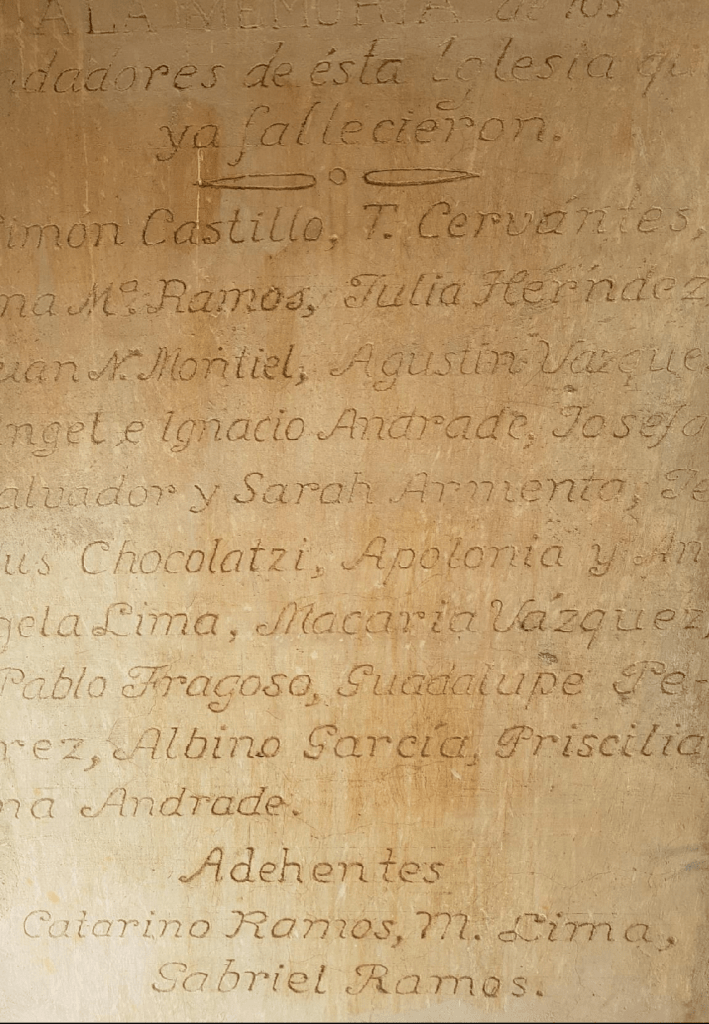 A LA MEMORIA de los
dadores de ésta Iglesia qu
ya fallecieron.
imon Castillo, T. Cervántes,
na Mª. Ramos, Julia Hérndez
uan N. Montiel, Agustin Vazque
ngel e Ignacio Andrade, Josefa
alvador y Sarah Armenta, Je
us Chocolatzi, Apolonia y An
gela Lima, Macaria Vázquez,
Pablo Fragoso, Guadalupe Pe-
rez, Albino García, Priscilia
na Andrade.
Adehentes
Catarino Ramos, M. Lima,
Gabriel Ramos.